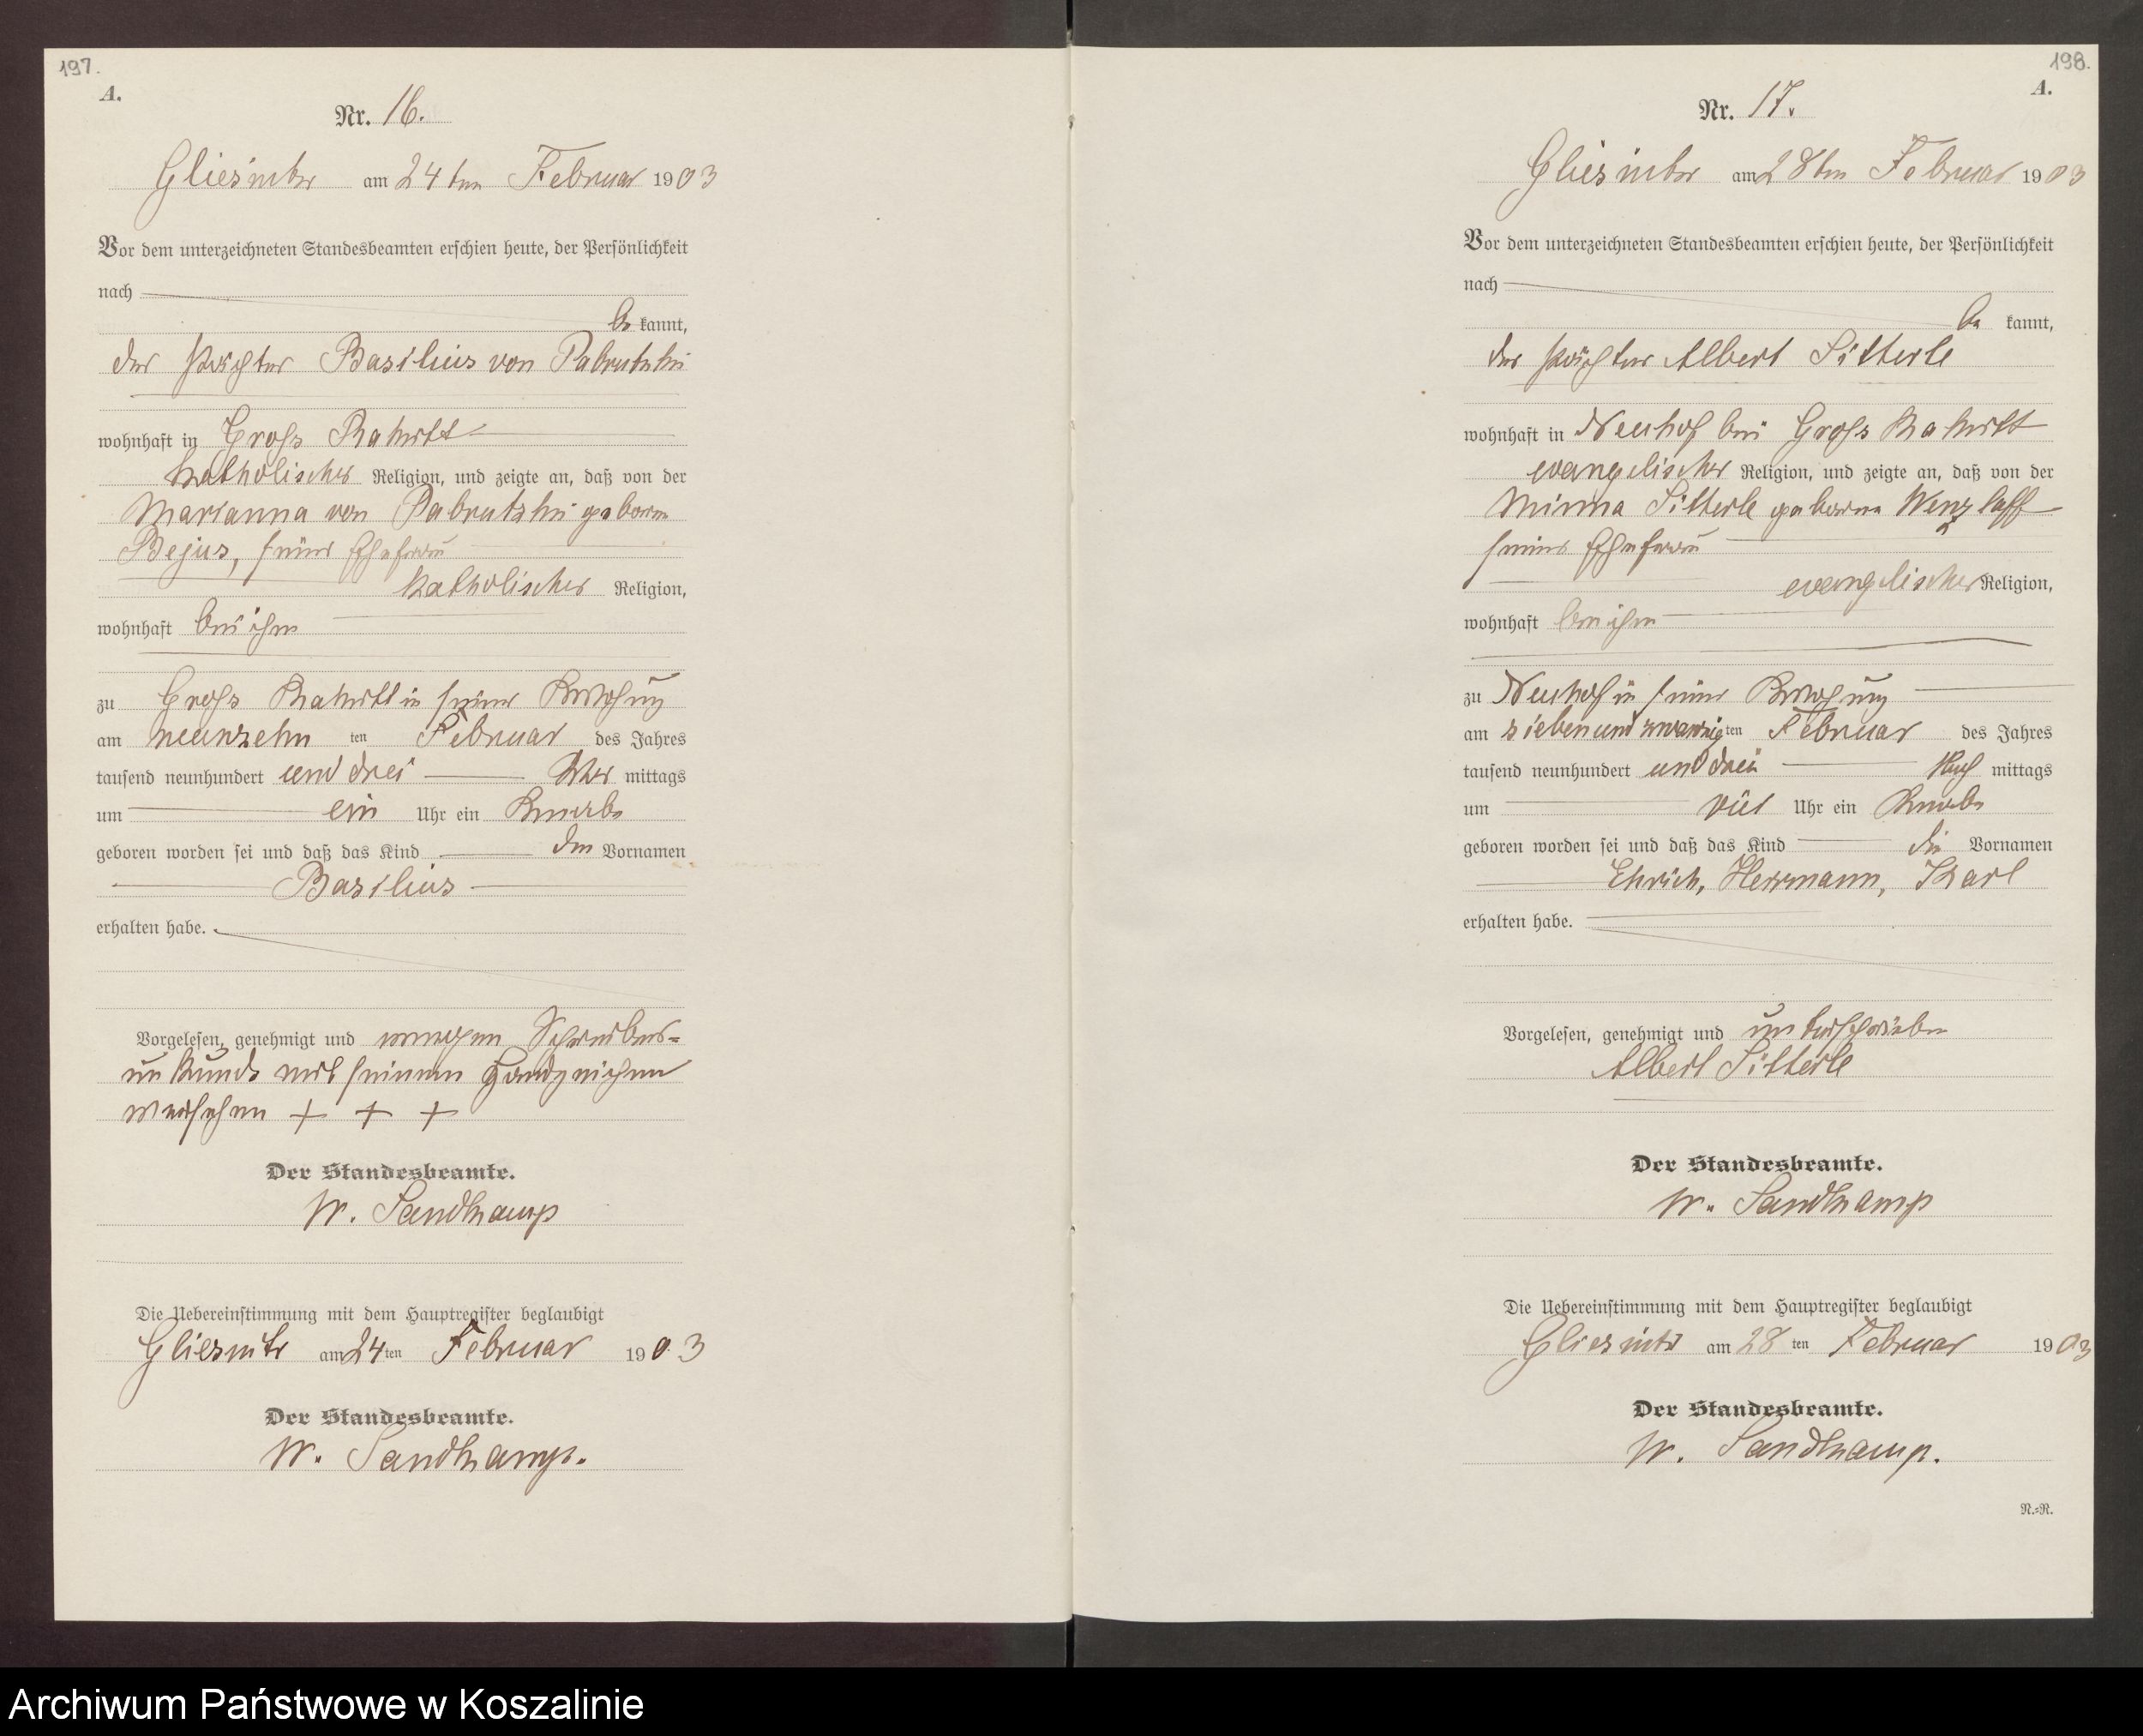 197.
A.
Nr. 16.
Gliesnitz am 24ten Februar 1903
Vor dem unterzeichneten Standesbeamten erschien heute, der Persönlichkeit
nach
be kannt,
der Pächter Basilius von Pabrutzki
wohnhaft in Gross Rakitt
katholischer Religion, und zeigte an, daß von der
Marianna von Pabrutzki geborn
Bejus, seiner Ehefrau
katholischer Religion,
wohnhaft bei ihm
zu Gross Rakitt in seiner Wohnung
am neunzehn ten Februar des Jahres
tausend neunhundert und drei mittags
um ein Uhr ein Knabe
geboren worden sei und daß das Kind den Vornamen
Basilius
erhalten habe.
Vorgelesen, genehmigt und wegen Schreibens-
unkunde mit seinem Handzeichen
versehen + + +
Der Standesbeamte.
W. Sandkamp
Die Uebereinstimmung mit dem Hauptregister beglaubigt
Gliesnitz am 24ten Februar 1903
Der Standesbeamte.
W. Sandkamp.
198.
A.
Nr. 17.
Gliesnitz am 28ten Februar 1903
Vor dem unterzeichneten Standesbeamten erschien heute, der Persönlichkeit
nach
be kannt,
der Pächter Albert Sitterle
wohnhaft in Neuhof bei Gross Rakitt
evangelischer Religion, und zeigte an, daß von der
Minna Sitterle geborne Wenzlaff
seiner Ehefrau
evangelischer Religion,
wohnhaft bei ihm
zu Neuhof in seiner Wohnung
am siebenundzwanzigten Februar des Jahres
tausend neunhundert und drei Nach mittags
um vier Uhr ein Knabe
geboren worden sei und daß das Kind die Vornamen
Ehrich, Herrmann, Karl
erhalten habe.
Vorgelesen, genehmigt und unterschrieben
Albert Sitterle
Der Standesbeamte.
W. Sandkamp
Die Uebereinstimmung mit dem Hauptregister beglaubigt
Gliesnitz am 28 ten Februar 1903
Der Standesbeamte.
W. Sandkamp.
N.=R.
Archiwum Państwowe w Koszalinie